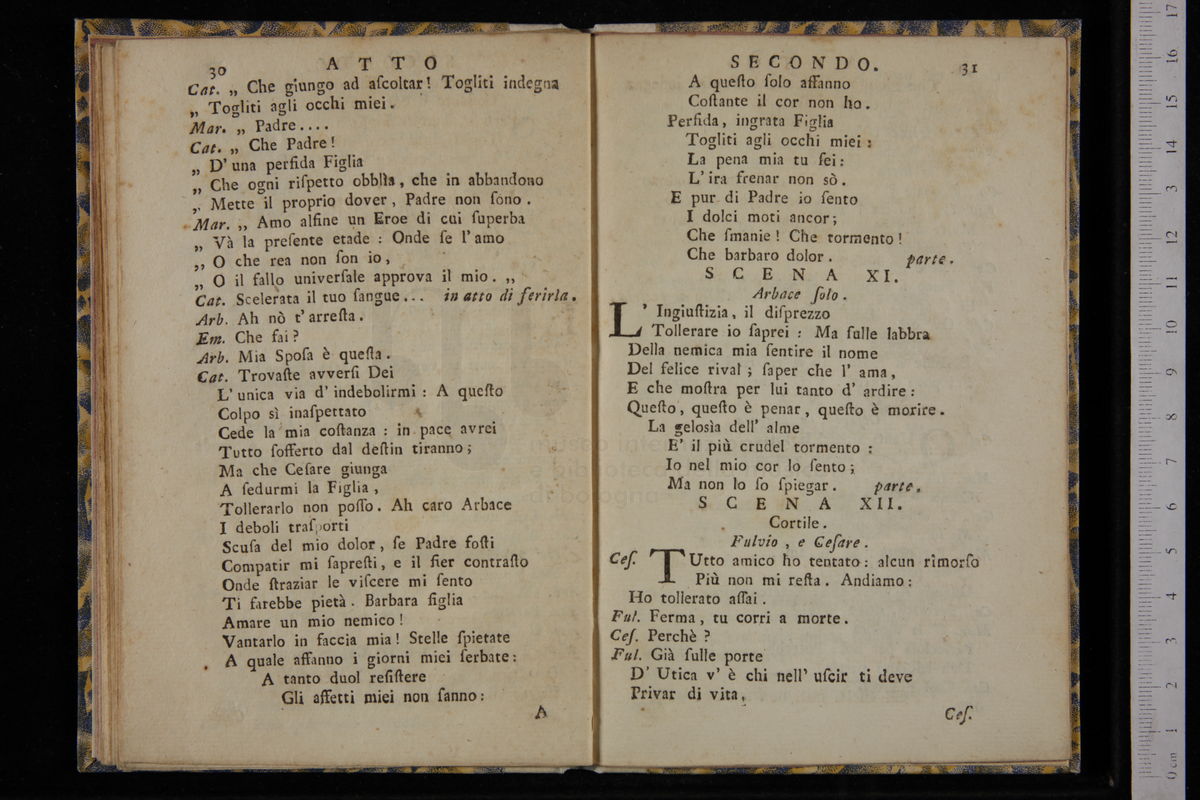 30 A T T O
Cat. „ Che giungo ad aſcoltar! Togliti indegna
„ Togliti agli occhi miei.
Mar. „ Padre....
Cat. „ Che Padre!
„ D' una perfida Figlia
„ Che ogni riſpetto obblìa, che in abbandono
„ Mette il proprio dover, Padre non ſono.
Mar. „ Amo alfine un Eroe di cui ſuperba
„ Và la preſente etade : Onde ſe l' amo
„ O che rea non ſon io,
„ O il fallo univerſale approva il mio. „
Cat. Scelerata il tuo ſangue... in atto di ferirla.
Arb. Ah nò t' arreſta.
Em. Che fai?
Arb. Mia Spoſa è queſta.
Cat. Trovaſte avverſi Dei
L' unica via d' indebolirmi : A queſto
Colpo sì inaſpettato
Cede la mia coſtanza : in pace avrei
Tutto ſofferto dal deſtin tiranno;
Ma che Ceſare giunga
A ſedurmi la Figlia,
Tollerarlo non poſſo. Ah caro Arbace
I deboli traſporti
Scuſa del mio dolor, ſe Padre foſti
Compatir mi ſapreſti, e il fier contraſto
Onde ſtraziar le viſcere mi ſento
Ti farebbe pietà. Barbara figlia
Amare un mio nemico!
Vantarlo in faccia mia! Stelle ſpietate
A quale affanno i giorni miei ſerbate:
A tanto duol reſiſtere
Gli affetti miei non ſanno:
A
S E C O N D O. 31
A queſto ſolo affanno
Coſtante il cor non ho.
Perfida, ingrata Figlia
Togliti agli occhi miei :
La pena mia tu ſei:
L' ira frenar non sò.
E pur di Padre io ſento
I dolci moti ancor;
Che ſmanie! Che tormento!
Che barbaro dolor. parte.
S C E N A XI.
Arbace ſolo.
L' Ingiuſtizia, il diſprezzo
Tollerare io ſaprei : Ma ſulle labbra
Della nemica mia ſentire il nome
Del felice rival; ſaper che l' ama,
E che moſtra per lui tanto d' ardire:
Queſto, queſto è penar, queſto è morire.
La gelosìa dell' alme
E' il più crudel tormento :
Io nel mio cor lo ſento;
Ma non lo ſo ſpiegar. parte.
S C E N A XII.
Cortile.
Fulvio, e Ceſare.
Ceſ. TUtto amico ho tentato: alcun rimorſo
Più non mi reſta. Andiamo:
Ho tollerato aſſai.
Ful. Ferma, tu corri a morte.
Ceſ. Perchè?
Ful. Già ſulle porte
D' Utica v' è chi nell' uſcir ti deve
Privar di vita.
Ceſ.